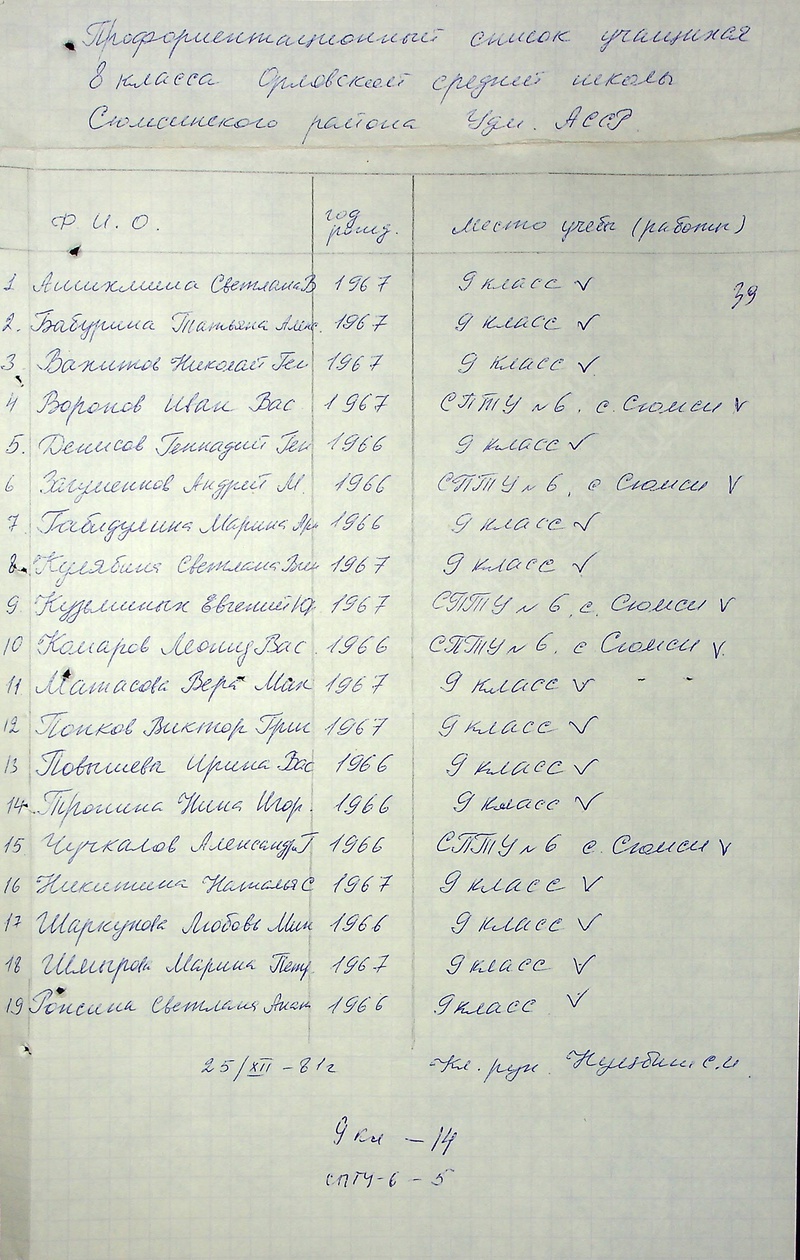 Профориентационный список учащихся
8 класса Орловской средней школы
Сюмсинского района Удм. АССР.
Ф И. О. год рожд. Место учебы (работы)
39
1 Ашихмина Светлана В 1967 9 класс V
2. Бабурина Татьяна Алекс. 1967 9 класс V
3 Вахитов Николай Ген 1967 9 класс V
4 Воронов Иван Вас 1967 СПТУ №6. с. Сюмси V
5. Денисов Геннадий Ген 1966 9 класс V
6 Загуменнов Андрей М. 1966 СПТУ №6, с Сюмси V
7 Габидулина Марина 1966 9 класс V
8. Кулябина Светлана 1967 9 класс V
9 Кузьминых Евгений Ю 1967 СПТУ №6, с. Сюмси V
10 Комаров Леонид Вас. 1966 СПТУ №6. с Сюмси V
11 Матасова Вера Мак 1967 9 класс V
12 Попков Виктор Григ 1967 9 класс V
13 Повышева Ирина Вас 1966 9 класс V
14. Тронина Нина Игор. 1966 9 класс V
15 Чучкалов Александр Г 1966 СПТУ №6 с. Сюмси V
16 Никитина Наталья С 1967 9 класс V
17 Шаркунова Любовь Мих 1966 9 класс V
18 Шмырова Марина Петр 1967 9 класс V
19 Светлана 1966 9 класс V
25/XII – 81г Кл. рук.
9 кл – 14
СПТУ-6 – 5